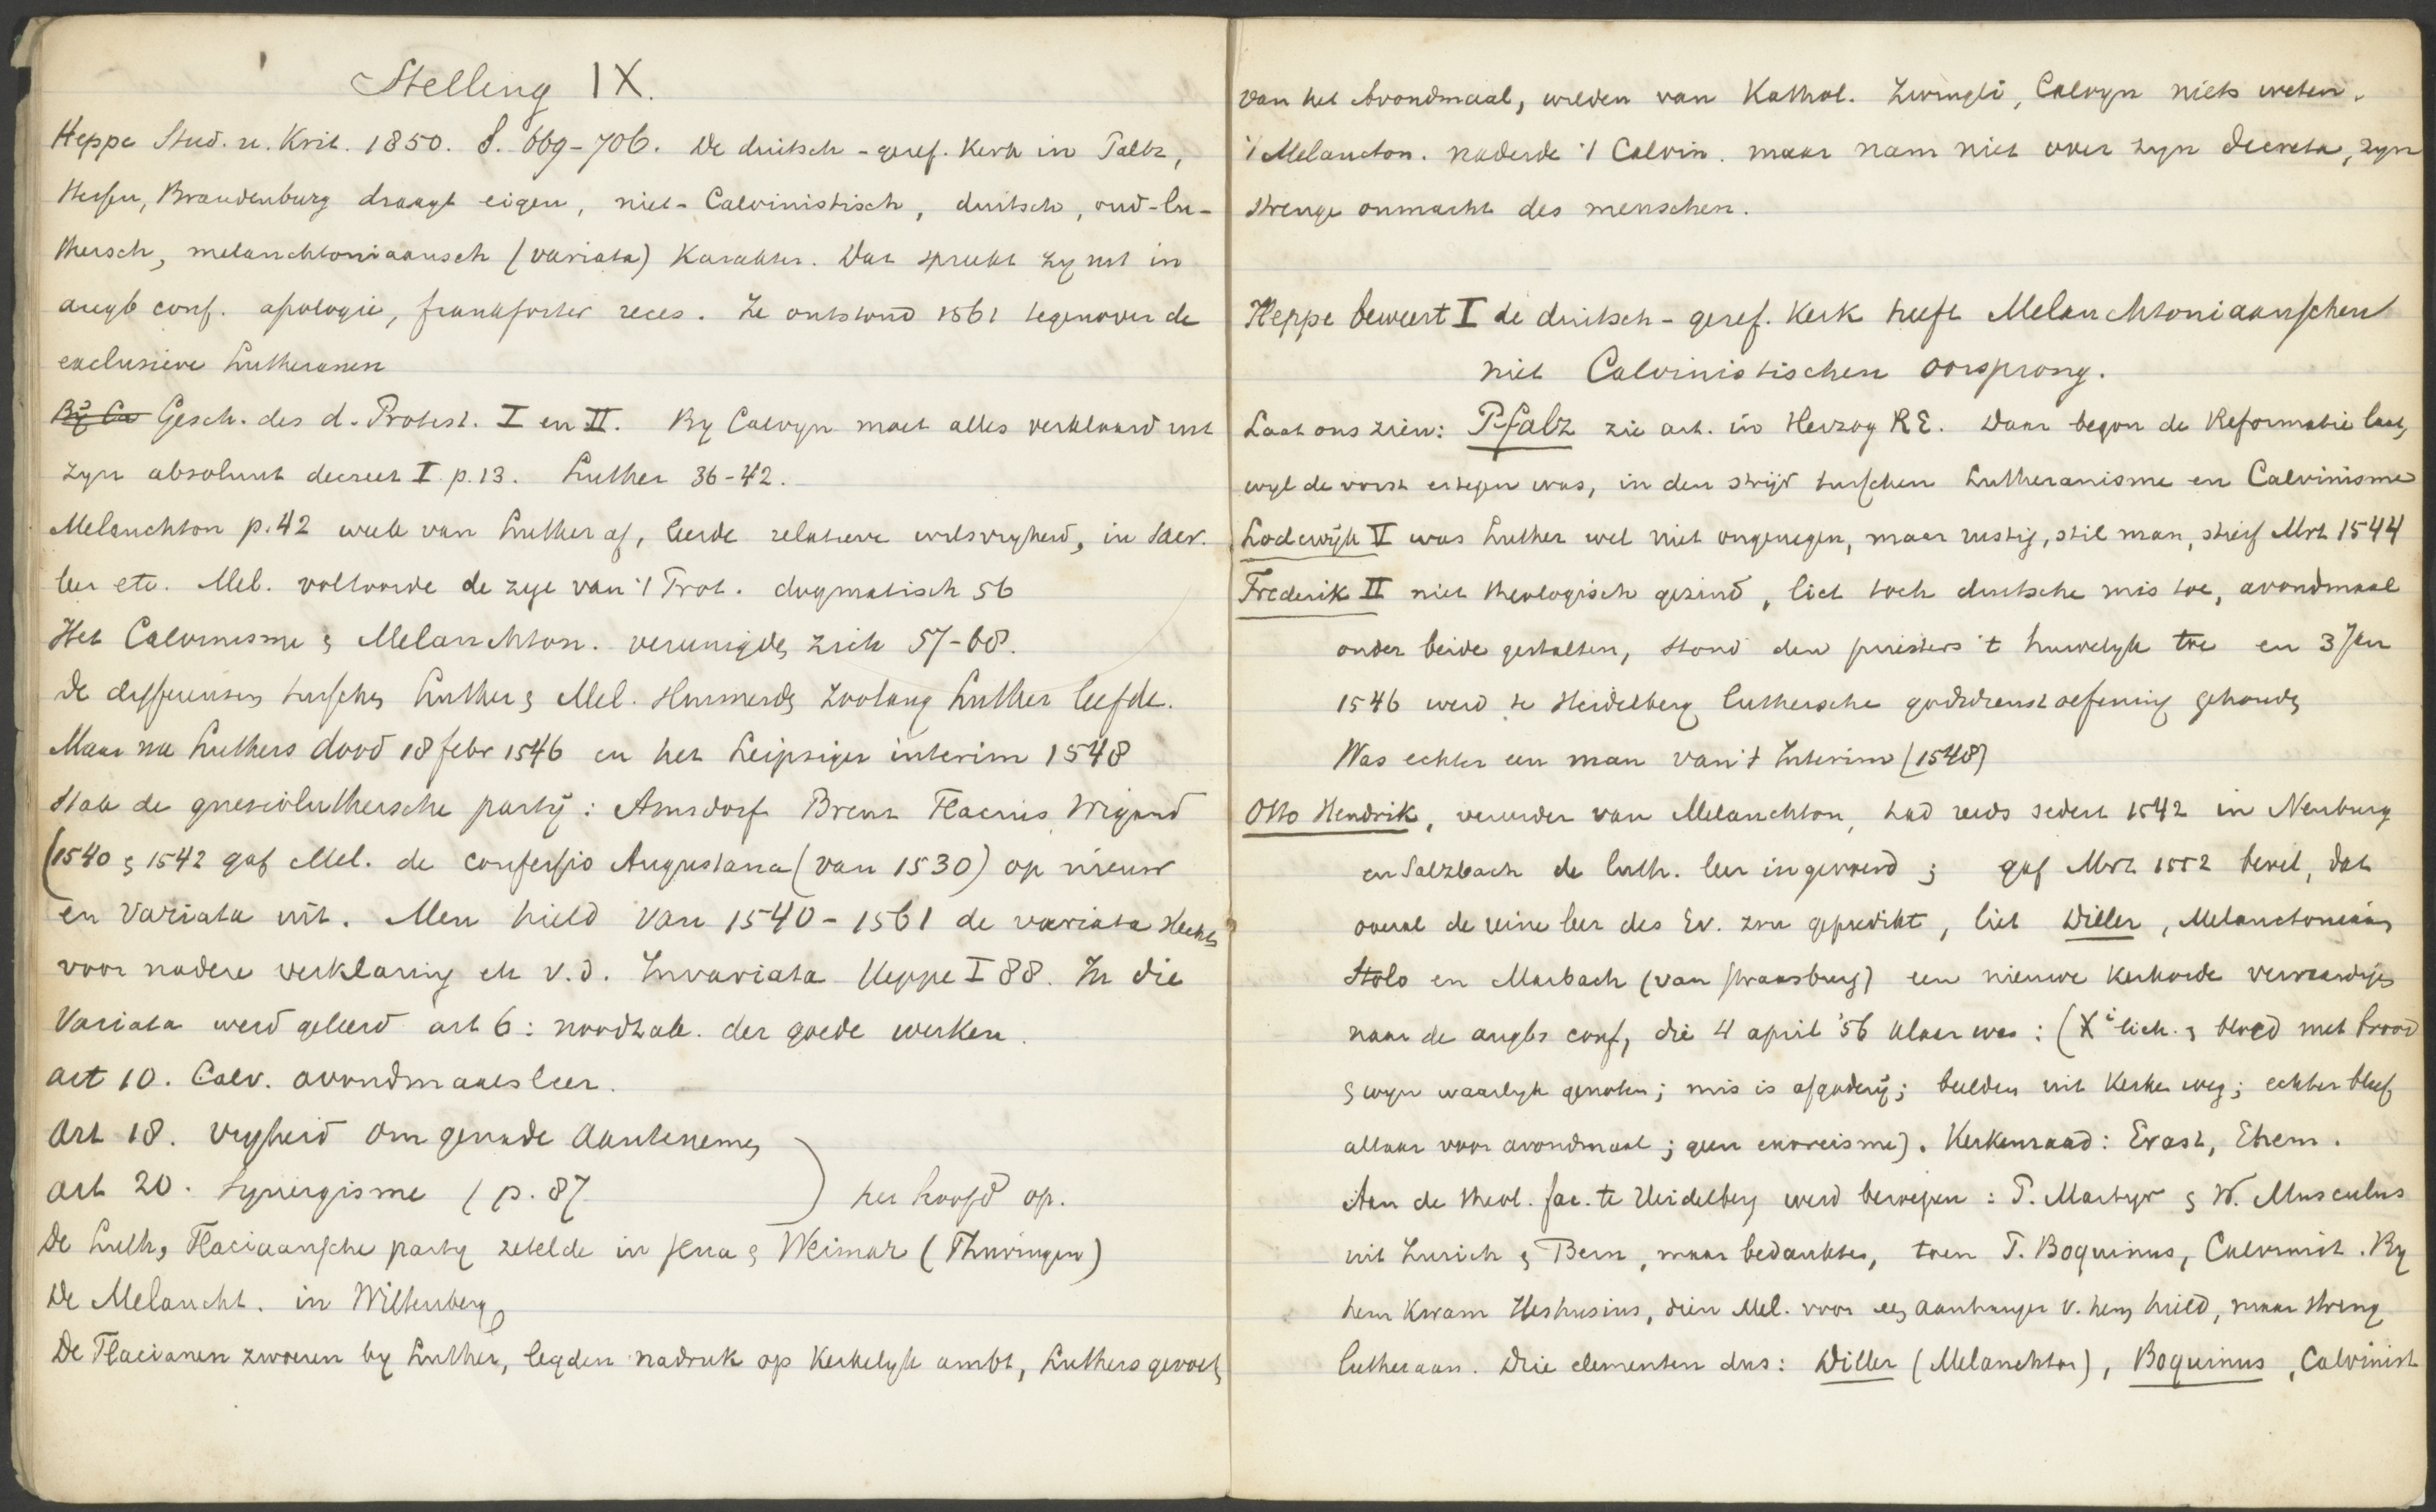 Stelling IX.
Heppe Stud. u. Krit. 1850. S. 669-706. De duitsch-geref. Kerk in Paltz,
Hessen, Brandenburg draagt eigen, niet-Calvinistisch, duitsch, oud-lu-
thersch, melanchtoniaansch (variata) Karakter. Dat spreekt zy uit in
augb conf. apologie, frankforter reces. Ze ontstond 1561 tegenover de
exclusieve Lutheranen
By Ca Gesch. des d. Protest. I en II. By Calvyn moet alles verklaard uit
zyn absoluut decreet I p. 13. Luther 36-42.
Melanchton p. 42 week van Luther af, leerde relatieve wilsvryheid, in sacr.
leer etc. Mel. voltooide de zyde van 't Prot. dogmatisch 56
Het Calvinisme & Melanchton. vereenigden zich 57-68.
De differensen tusschen Luther & Mel. sluimerden zoolang Luther leefde.
Maar na Luthers dood 18 febr 1546 en het Leipziger interim 1548
stak de gnesiolutersche party: Amsdorf Brenz Flacius Wigand
(1540 & 1542 gaf Mel. de confessio Augustana (van 1530) op nieuw
en Variata uit. Men hield van 1540-1561 de variata slechts
voor nadere verklaring etc v. d. Invariata Heppe I 88. In die
Variata werd geleerd art 6: noodzak. der goede werken.
art 10. Calv. avondmaalsleer.
art 18. vryheid om genade aantenemen
art 20. Synergisme / p. 87 ) het hoofd op.
De Luth, Flaciaansche party zetelde in Jena & Weimar (Thuringen)
De Melancht. in Wittenberg
De Flacianen zwoeren by Luther, legden nadruk op Kerkelyk ambt, Luthers gevoel
van het Avondmaal, wilden van Kathol. Zwingli, Calvyn niets weten.
't Melancton. naderde 't Calvin. maar nam niet over zyn decreta, zyn
strenge onmacht des menschen.
Heppe beweert I de duitsch-geref. Kerk heeft Melanchtoniaanschen
niet Calvinistischen oorsprong.
Laat ons zien: Pfalz zie art. in Herzog RE. Daar begon de Reformatie laat,
wyl de vorst ertegen was, in den strijd tusschen Lutheranisme en Calvinisme
Lodewijk V was Luther wel niet ongenegen, maar rustig, stil man, stierf Mrt 1544
Frederik II niet theologisch gezind, liet toch duitsche mis toe, avondmaal
onder beide gestalten, stond den priesters 't huwelyk toe en 3 Jan
1546 werd te Heidelberg luthersche godsdienstoefening gehouden
Was echter een man van 't Interim (1548)
Otto Hendrik, vereerder van Melanchton, had reeds sedert 1542 in Neuburg
en Salzbach de luth. leer ingevoerd; gaf Mrt 1552 bevel, dat
overal de reine leer des Ev. zou gepredikt, liet Diller, Melanctoniaan
Stolo en Marbach (van Straasburg) een nieuwe kerkorde vervaardigen
naar de augbs conf, die 4 april '56 klaar was: (Xi lich. & bloed met brood
& wyn waarlyk genoten; mis is afgodery; beelden uit Kerken weg; echter bleef
altaar voor avondmaal; geen exorcisme). Kerkenraad: Erast, Ehem.
Aan de theol. fac. te Heidelberg werd beroepen: P. Martyr & W. Musculus
uit Zurich & Bern, maar bedankten, toen P. Boquinus, Calvinist. By
hem kwam Heshusius, dien Mel. voor een aanhanger v. hem hield, maar streng
lutheraan. Drie elementen dus: Diller (Melanchton), Boquinus, Calvinist